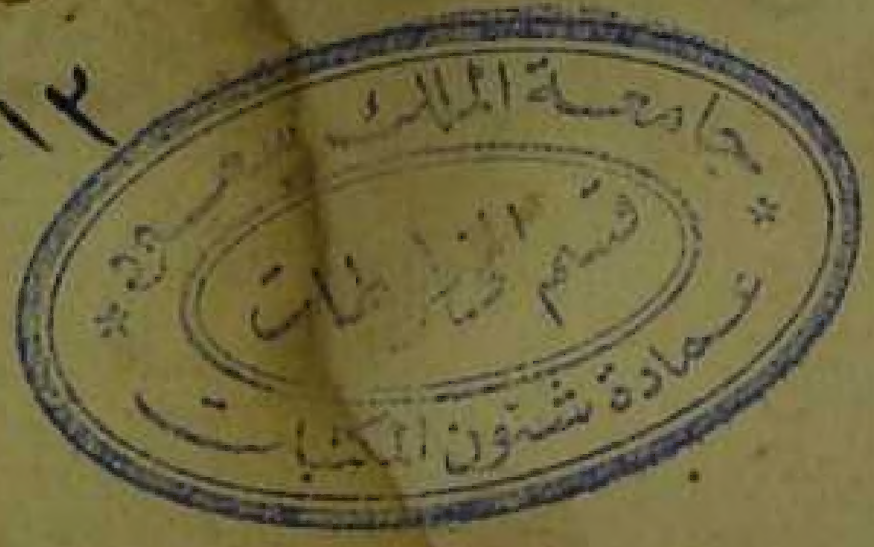 ١٢
جامعة الملك سعود
قسم المخطوطات
عمادة شئون المكتبات